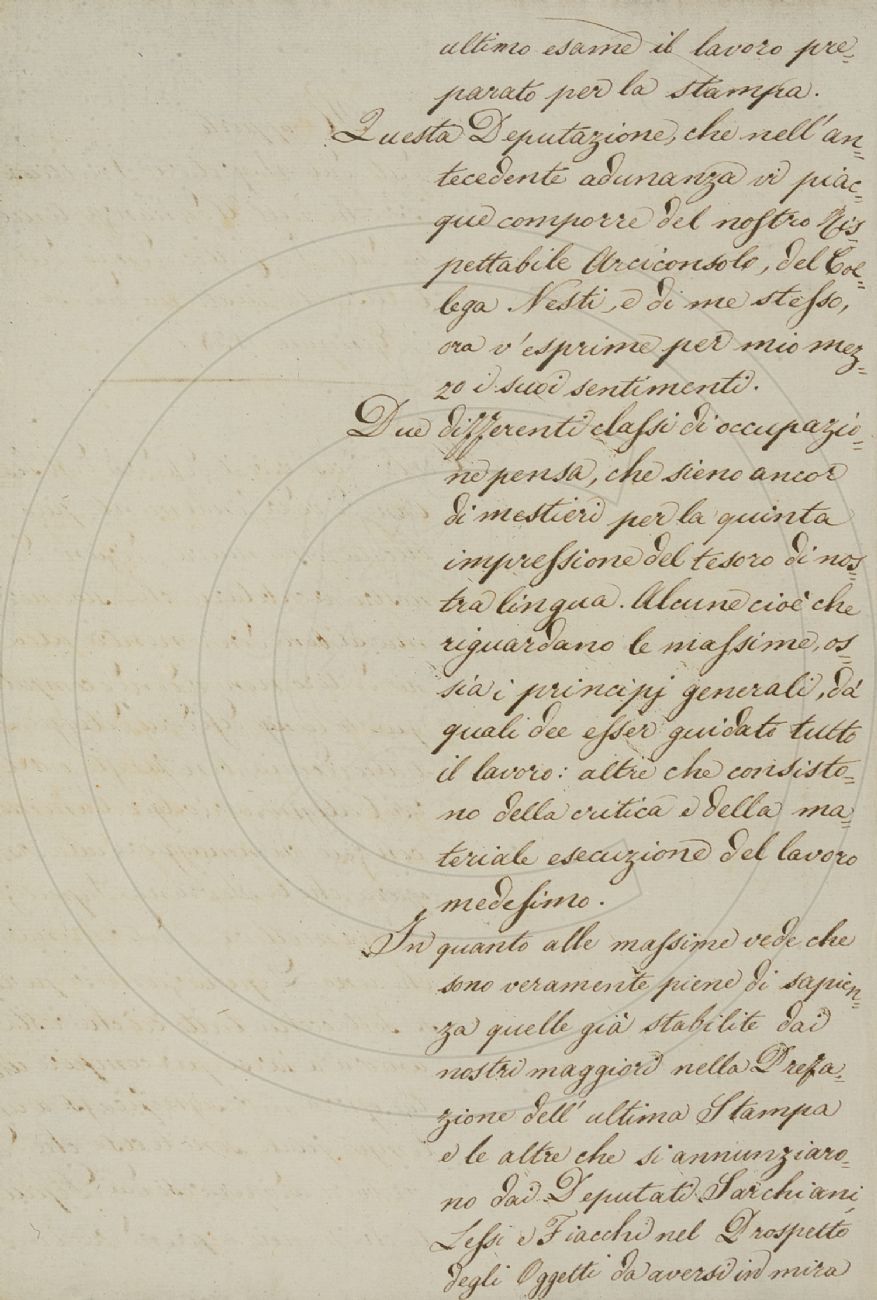 ultimo esame il lavoro pre=
parato per la stampa.
Questa Deputazione, che nell'an=
tecedente adunanza vi piac=
que comporre del nostro Ris=
pettabile Arciconsolo, del Col=
lega Nesti, e di me stesso,
ora v'esprime per mio mez=
zo i suoi sentimenti.
Due differenti classi di occupazio=
ne pensa, che sieno ancor
di mestieri per la quinta
impressione del tesoro di nos=
tra lingua. Alcune cioè che
riguardano le massime, os=
sia i principj generali, da'
quali dee esser guidato tutto
il lavoro: altre che consisto=
no della critica e della ma=
teriale esecuzione del lavoro
medesimo.
In quanto alle massime vede che
sono veramente piene di sapien=
za quelle già stabilite dai
nostri maggiori nella Prefa=
zione dell'ultima Stampa
e le altre che si annunziaro=
no dai Deputati Sarchiani,
Lessi e Fiacchi nel Prospetto
degli Oggetti da aversi in mira